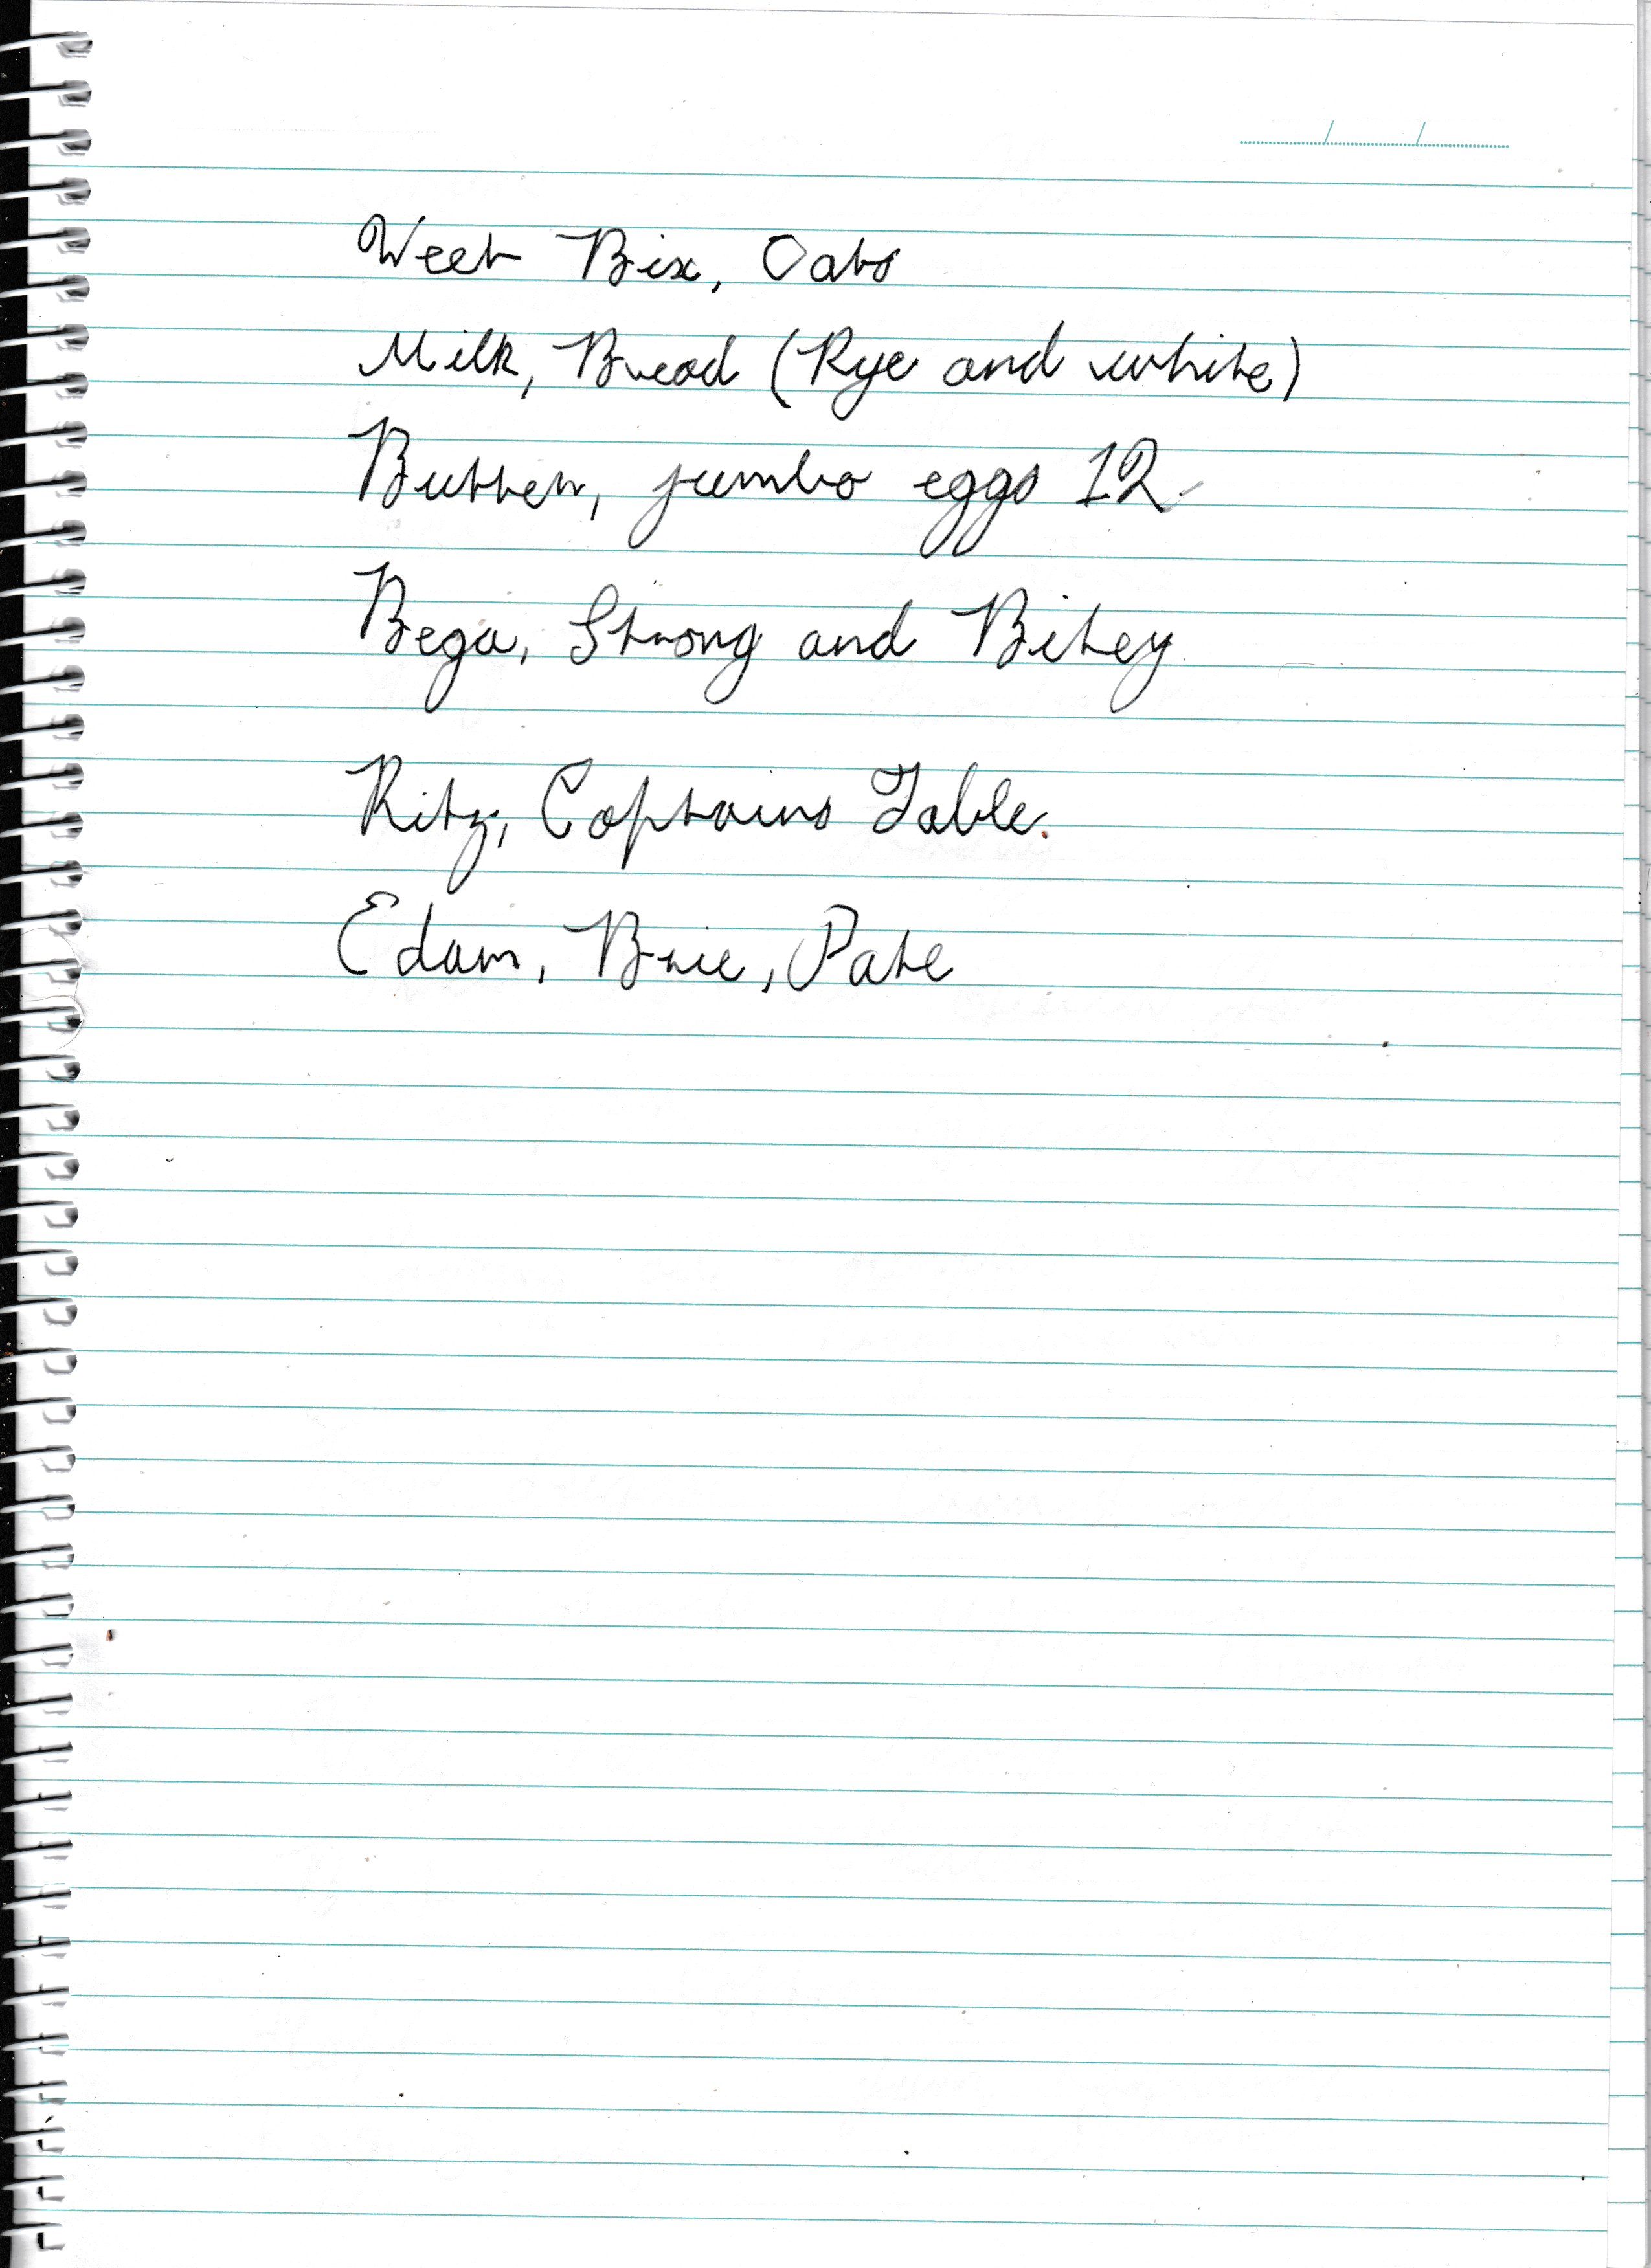 Weet Bix, Oats
Milk, Bread (Rye and white)
Butter, jumbo eggs 12.
Bega, Strong and Bitey
Ritz, Captains Table.
Edam, Brie, Pate